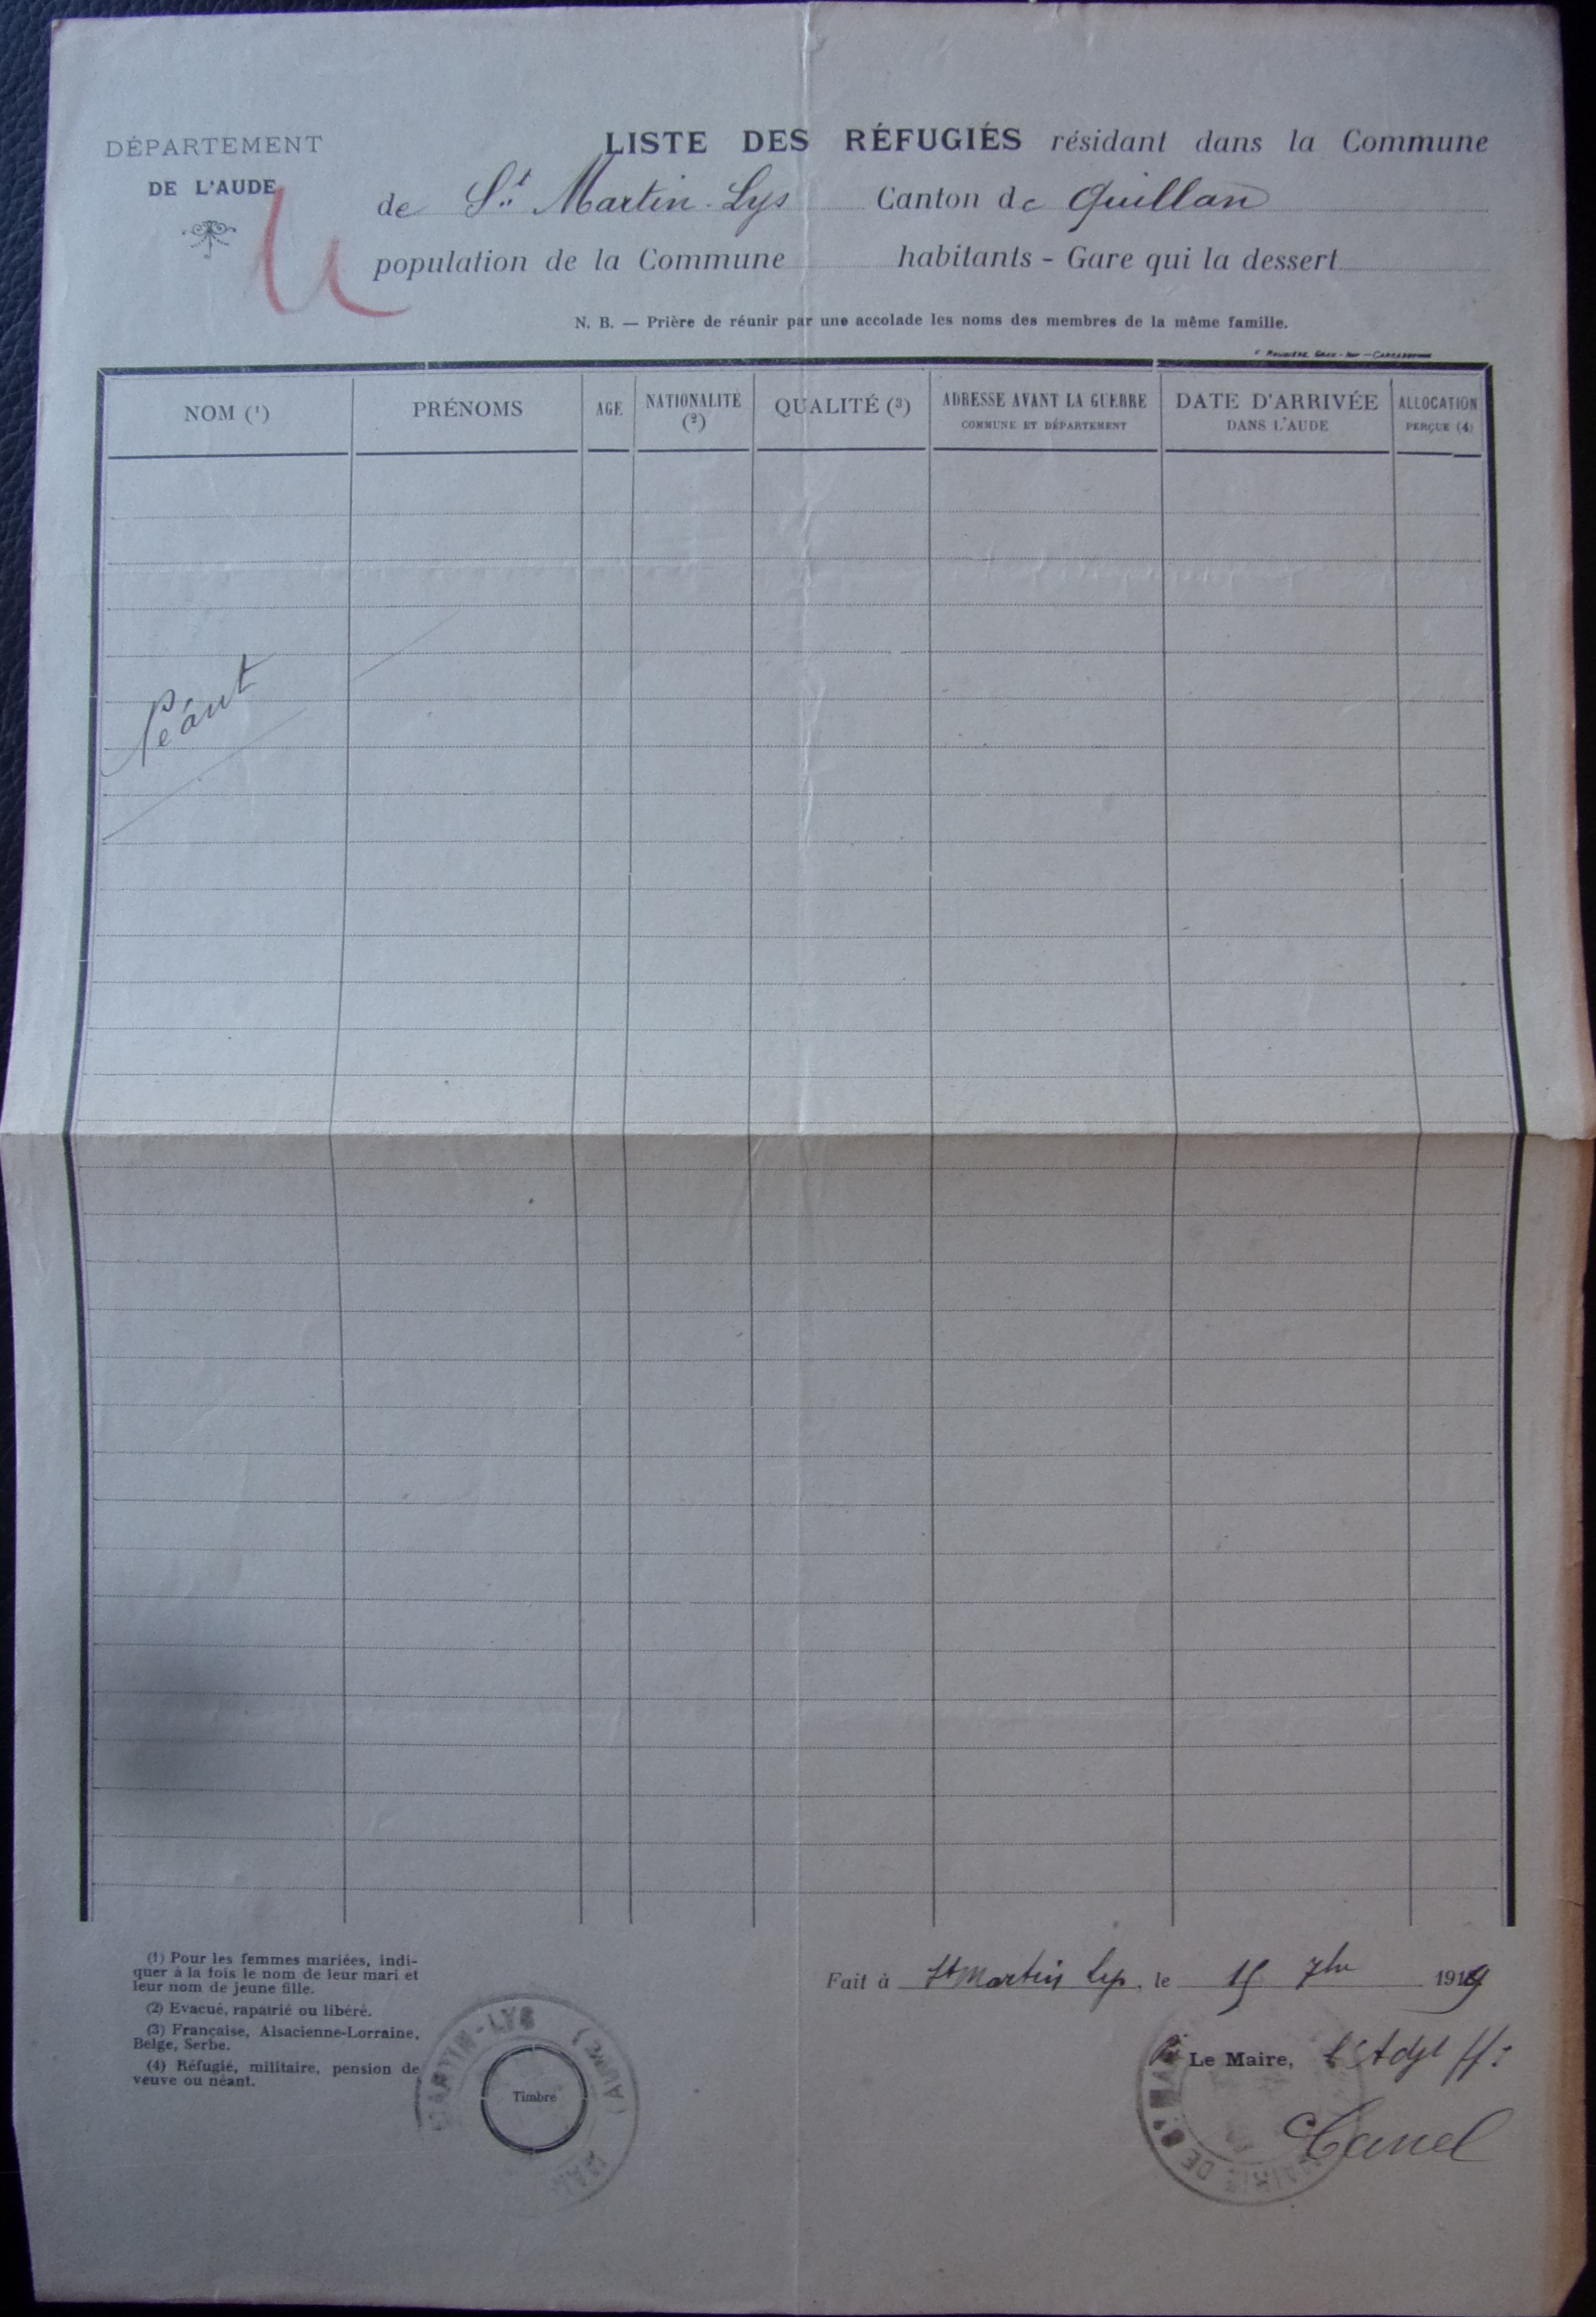 DÉPARTEMENT
DE L'AUDE
LISTE DES RÉFUGIÉS résidant dans la Commune
de St Martin-Lys Canton de Quillan
population de la Commune habitants - Gare qui la dessert
N. B. — Prière de réunir par une accolade les noms des membres de la même famille.
NOM (1) PRÉNOMS AGE NATIONALITÉ (2) QUALITÉ (3) ADRESSE AVANT LA GUERRE COMMUNE ET DÉPARTEMENT DATE D'ARRIVÉE DANS L'AUDE ALLOCATION PERÇUE (4)
Néant
(1) Pour les femmes mariées, indi-
quer à la fois le nom de leur mari et
leur nom de jeune fille.
(2) Evacué, rapatrié ou libéré.
(3) Française, Alsacienne-Lorraine,
Belge, Serbe.
(4) Réfugié, militaire, pension de
veuve ou néant.
Fait à St Martin Lys, le 15 7bre 1919
Le Maire,
MARTIN-LYS (AUDE)
Timbre
MAIRIE DE St MA